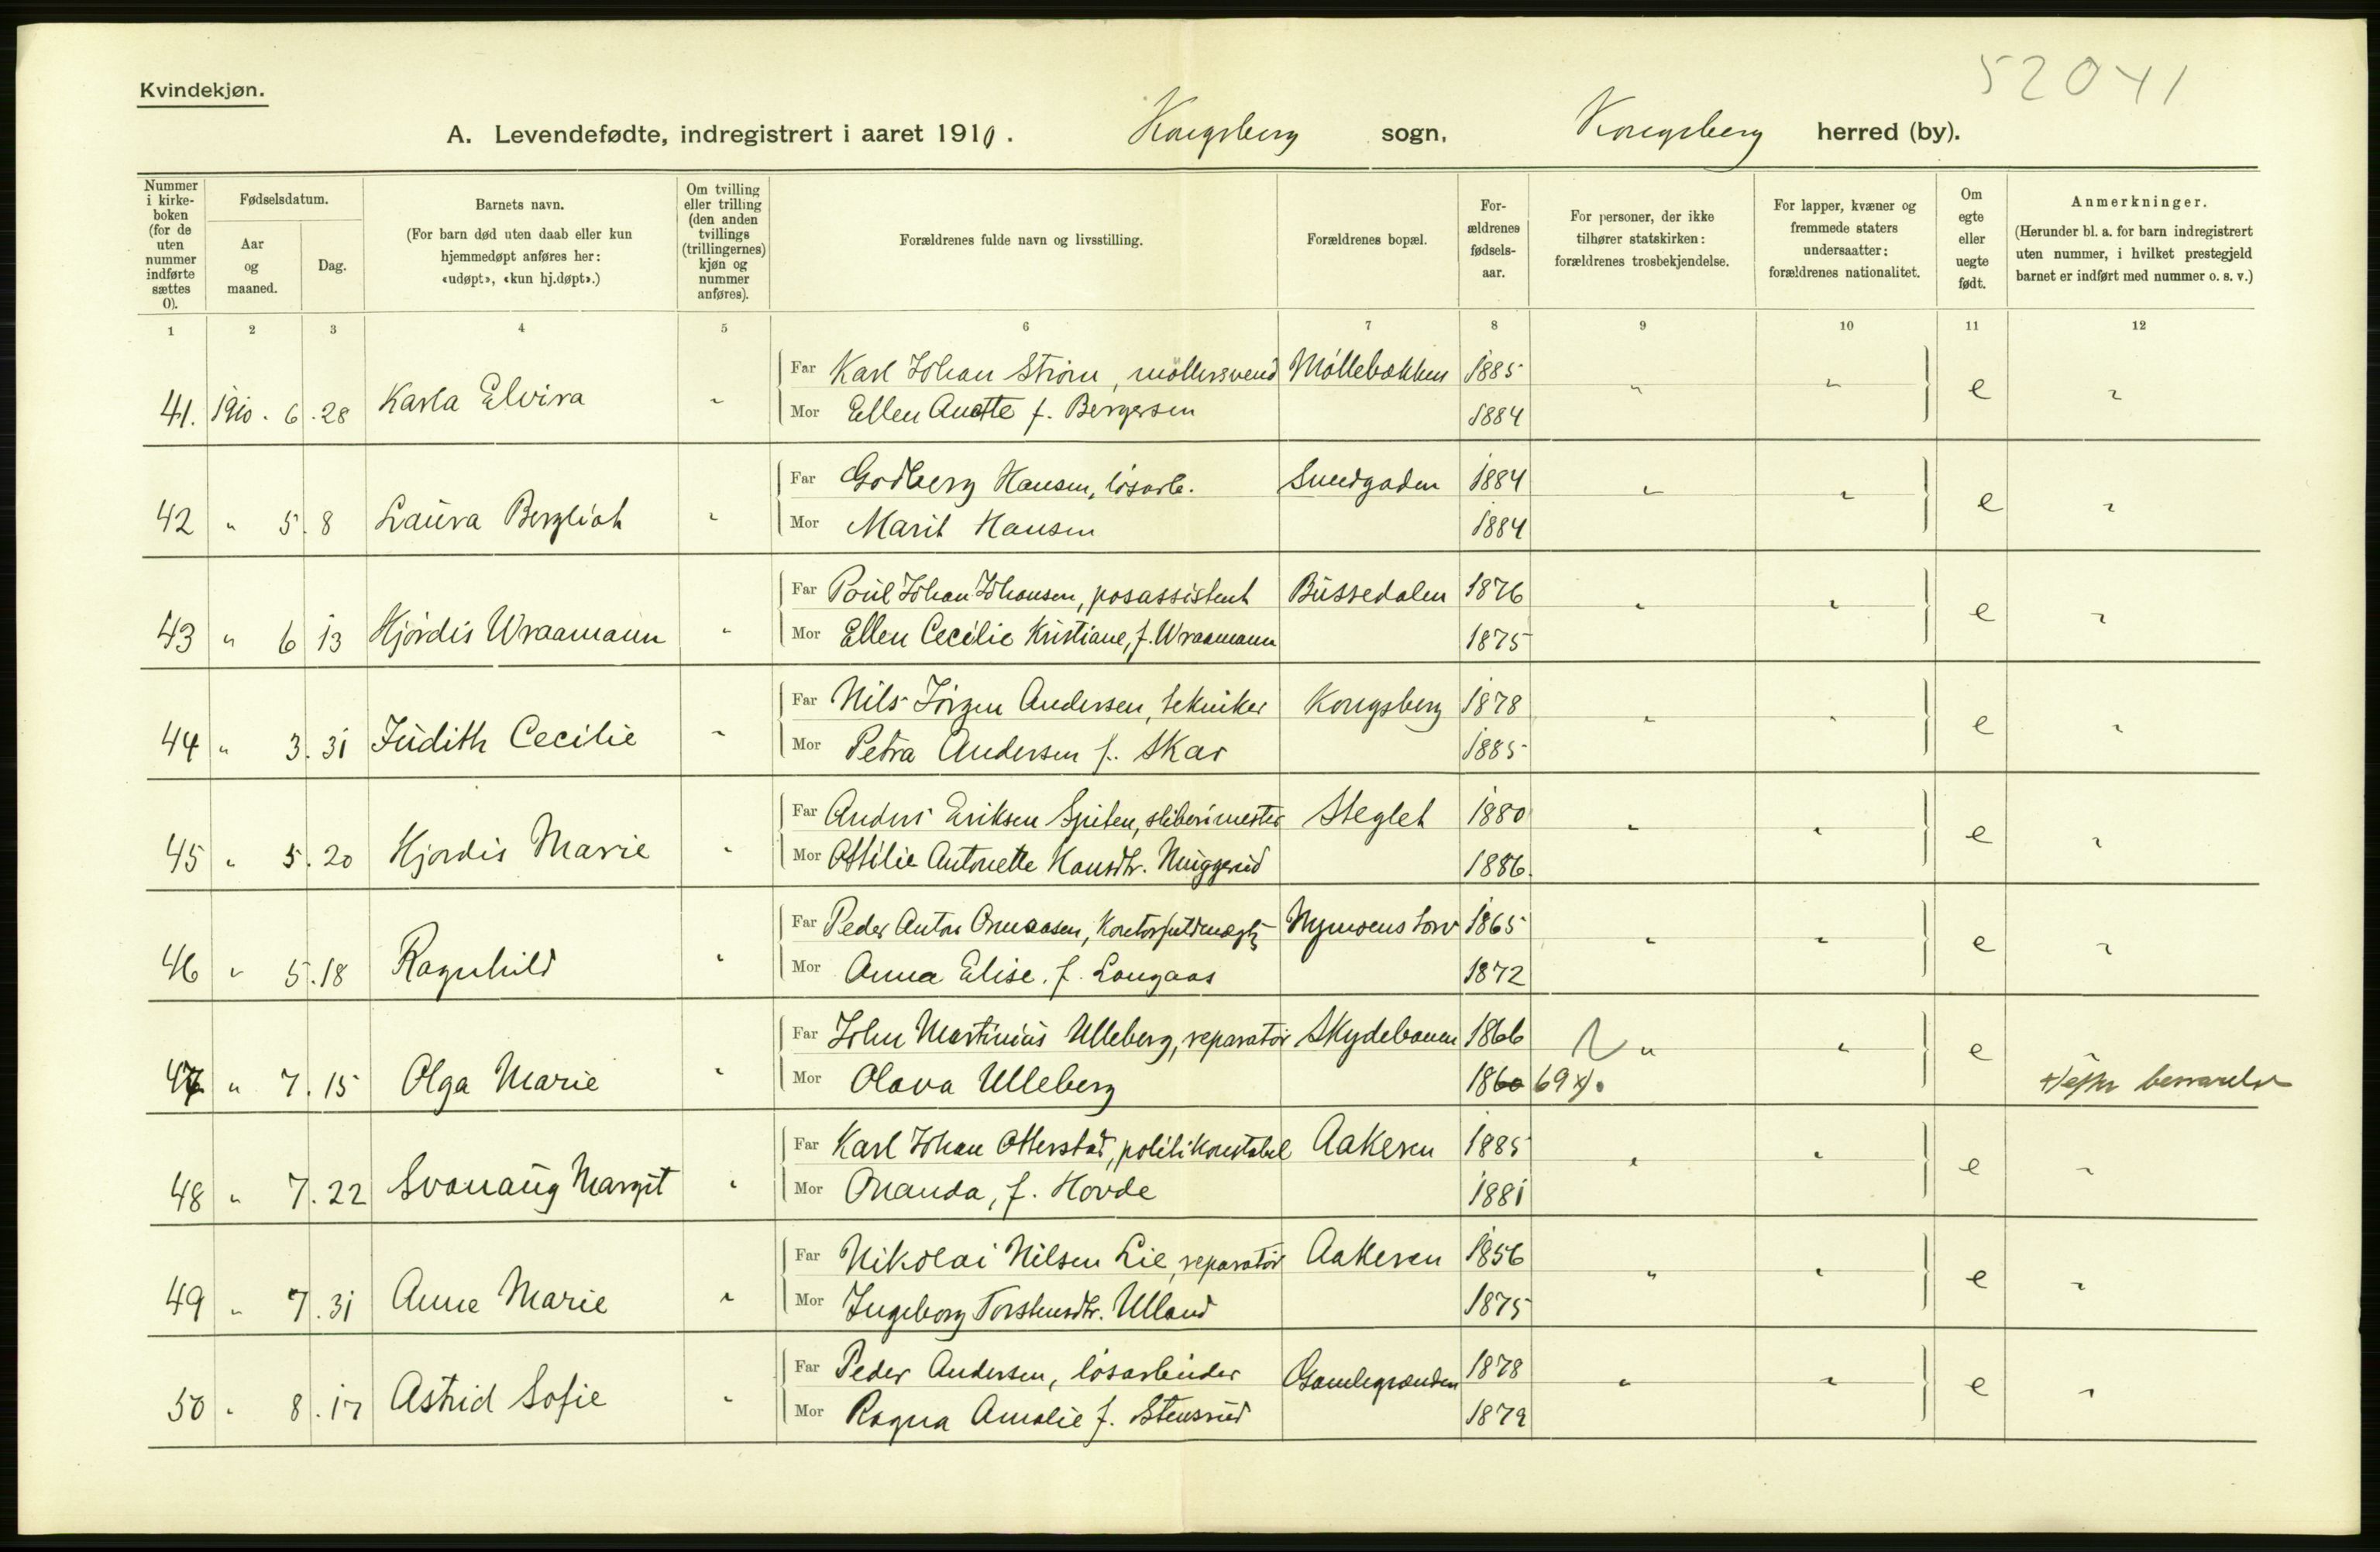 52041
Kvindekjøn.
A. Levendefødte, indregistrert i aaret 1910. Kongsberg sogn, Kongsberg herred (by).
Nummer i kirke-boken (for de uten nummer indførte sættes 0).
Fødselsdatum.
Aar og maaned.
Dag.
Barnets navn.
(For barn død uten daab eller kun hjemmedøpt anføres her: «udøpt», «kun hj.døpt».)
Om tvilling eller trilling (den anden tvillings (trillingernes) kjøn og nummer anføres).
Forældrenes fulde navn og livsstilling.
Forældrenes bopæl.
For-ældrenes fødsels-aar.
For personer, der ikke tilhører statskirken: forældrenes trosbekjendelse.
For lapper, kvæner og fremmede staters undersaatter: forældrenes nationalitet.
Om egte eller uegte født.
Anmerkninger.
(Herunder bl. a. for barn indregistrert uten nummer, i hvilket prestegjeld barnet er indført med nummer o. s. v.)
1 2 3 4 5 6 7 8 9 10 11 12
Far Karl Johan Strøm, møllersvend Møllebakken 1885
41. 1910. 6. 28 Karla Elvira " " " e "
Mor Ellen Anette f. Bergersen 1884
Far Godberg Hansen, løsarb. Sundgaden 1884
42 " 5. 8 Laura Bergliot " " " e "
Mor Marit Hansen 1884
Far Poul Johan Johansen, posassistent Bussedalen 1876
43 " 6 13 Hjørdis Wraamann " " " e "
Mor Ellen Cecilie Kristiane, f. Wraamann 1875
Far Nils Jørgen Andersen, tekniker Kongsberg 1878
44 " 3. 31 Judith Cecilie " " " e "
Mor Petra Andersen f. Skar 1885
Far Anders Eriksen Spiten, sliberimester Steglet 1880
45 " 5. 20 Hjordis Marie " " " e "
Mor Ottilie Antonette Hansdtr. Muggerud 1886.
Far Peder Anton Omaasen, Kontorfuldmægt Nymoens torv 1865
46 " 5. 18 Ragnhild " " " e "
Mor Anna Elise. f. Langaas 1872
Far John Martinius Ulleberg, reparatør Skydebanen 1866
47 " 7. 15 Olga Marie " " " e
Mor Olava Ulleberg 1860 69 x).
Far Karl Johan Otterstad, politikonstabel Aakeren 1885
48 " 7. 22 Svanaug Margit " " " e "
Mor Ananda, f. Hovde 1881
Far Nikolai Nilsen Lie, reparatør Aakeren 1856
49 " 7. 31 Anne Marie " " " e "
Mor Ingeborg Torstensdtr. Ulland 1875
Far Peder Andersen, løsarbeider Gamlegrænden 1878
50 " 8. 17 Astrid Sofie " " " e "
Mor Ragna Amalie f. Stensrud 1879